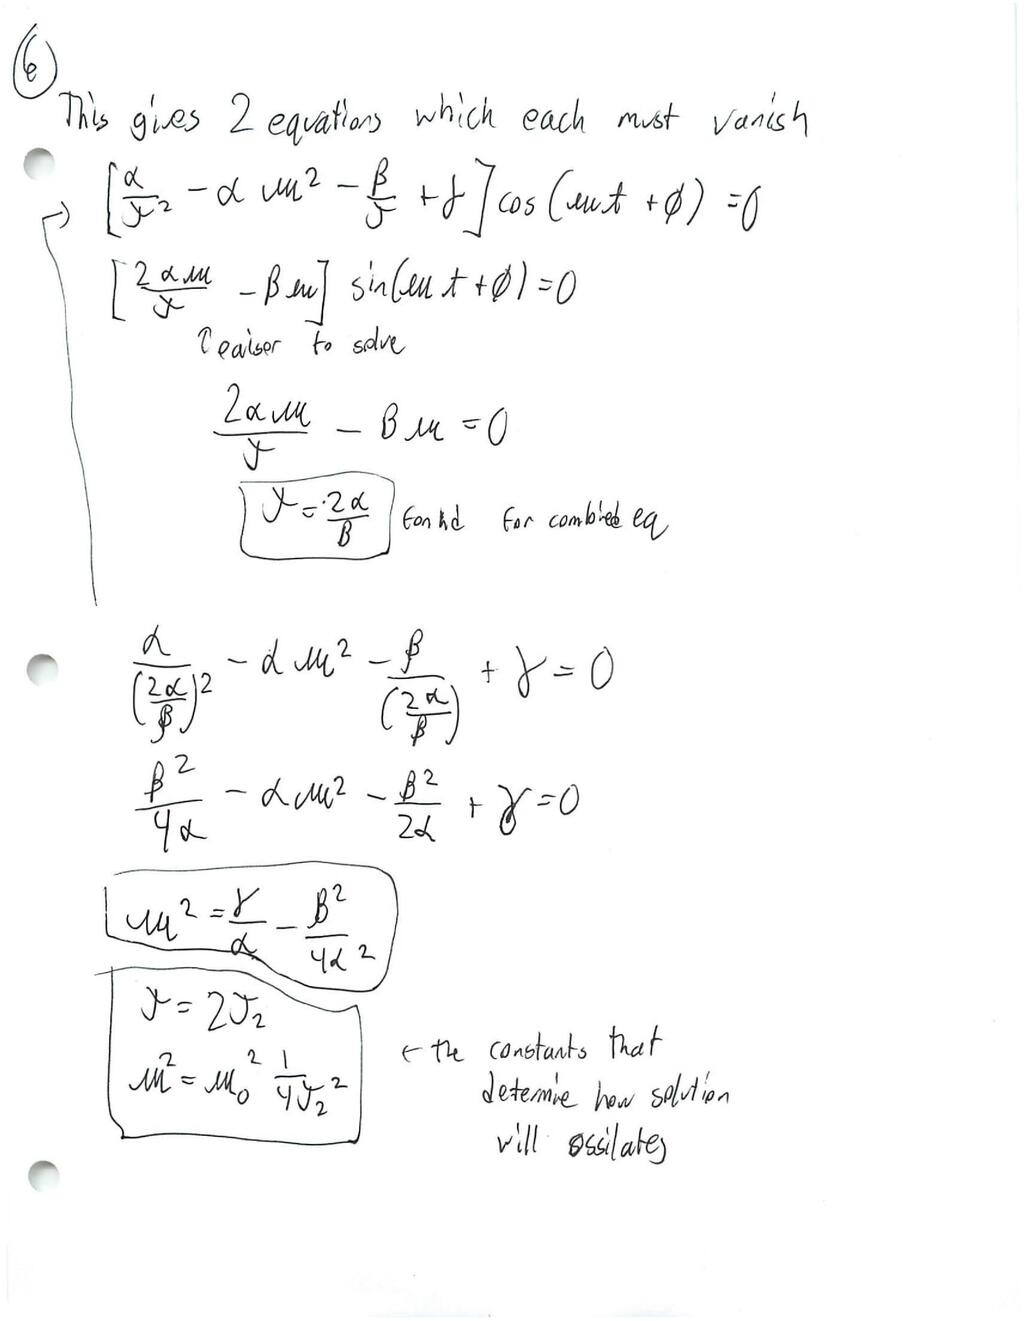 6
This gives 2 equations which each must vanish
[α/τ² - α ω² - β/τ + γ] cos(ωt + φ) = 0
[2αω/τ - βω] sin(ωt + φ) = 0
↑ eaiser to solve
2αω/τ - βω = 0
τ = 2α/β for combied eq
α/(2α/β)² - αω² - β/(2α/β) + γ = 0
β²/4α - αω² - β²/2α + γ = 0
ω² = γ/α - β²/4α²
τ = 2τ₂
ω² = ω₀² 1/4τ₂²
← the constants that
determie how solution
will ossilates